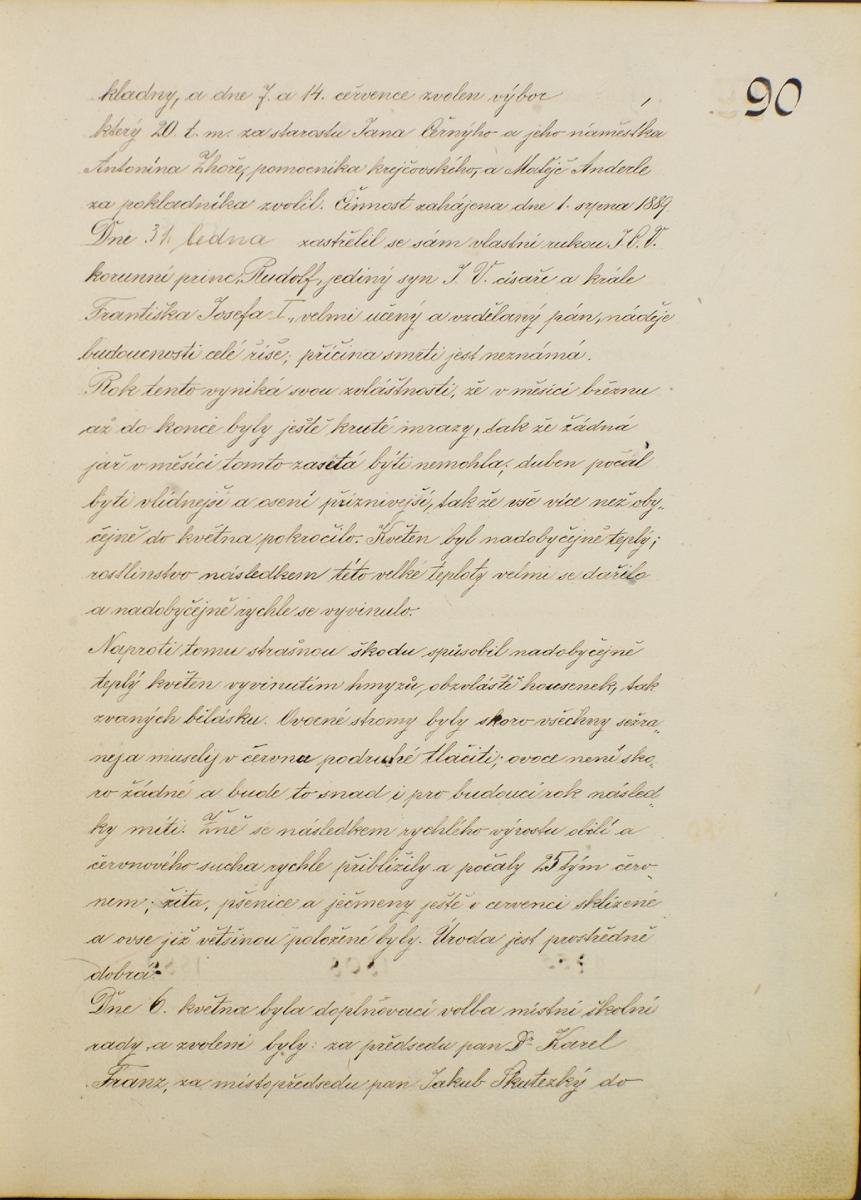 90
kladny, a dne 7. a 14. července zvolen výbor,
který 20. t. m. za starostu Jana Černýho a jeho náměstka
Antonína Zhoře, pomocníka krejčovského, a Matěje Anderle
za pokladníka zvolil. Činnost zahájena dne 1. srpna 1889.
Dne 31. ledna zastřelil se sám vlastní rukou J. C. V.
korunní princ, Rudolf, jediný syn J. V. císaře a krále
Františka Josefa I., velmi učený a vzdělaný pán, náděje
budoucnosti celé říše; příčina smrti jest neznámá.
Rok tento vyniká svou zvláštností, že v měsíci březnu
až do konce byly ještě kruté mrazy, tak že žádná
jař v měsíci tomto zasetá býti nemohla; duben počal
byti vlídnejší a osení příznivejší, tak že vše více než oby-
čejně do května pokročilo. Květen byl nadobyčejně teplý;
rostlinstvo následkem této velké teploty velmi se dařilo
a nadobyčejně rychle se vyvinulo.
Naproti tomu strašnou škodu spůsobil nadobyčejně
teplý květen vyvinutím hmyzů, obzvláště housenek, tak
zvaných bělásku. Ovocné stromy byly skoro všechny sežra-
neja musely v červnu podruhé tlačiti; ovoce není sko-
ro žádné a bude to snad i pro budoucí rok násled-
ky míti. Žně se následkem rychlého výrostu obilí a
červnového sucha rychle přiblížily a počaly 25tým červ-
nem; žita, pšenice a ječmeny ještě v červenci sklizené
a ovse již většinou položené byly. Úroda jest prostředně
dobrá.
Dne 6. května byla doplňovací volba místní školní
rady, a zvoleni byly: za předsedu pan Dr. Karel
Franz, za místopředsedu pan Jakub Skutezký do